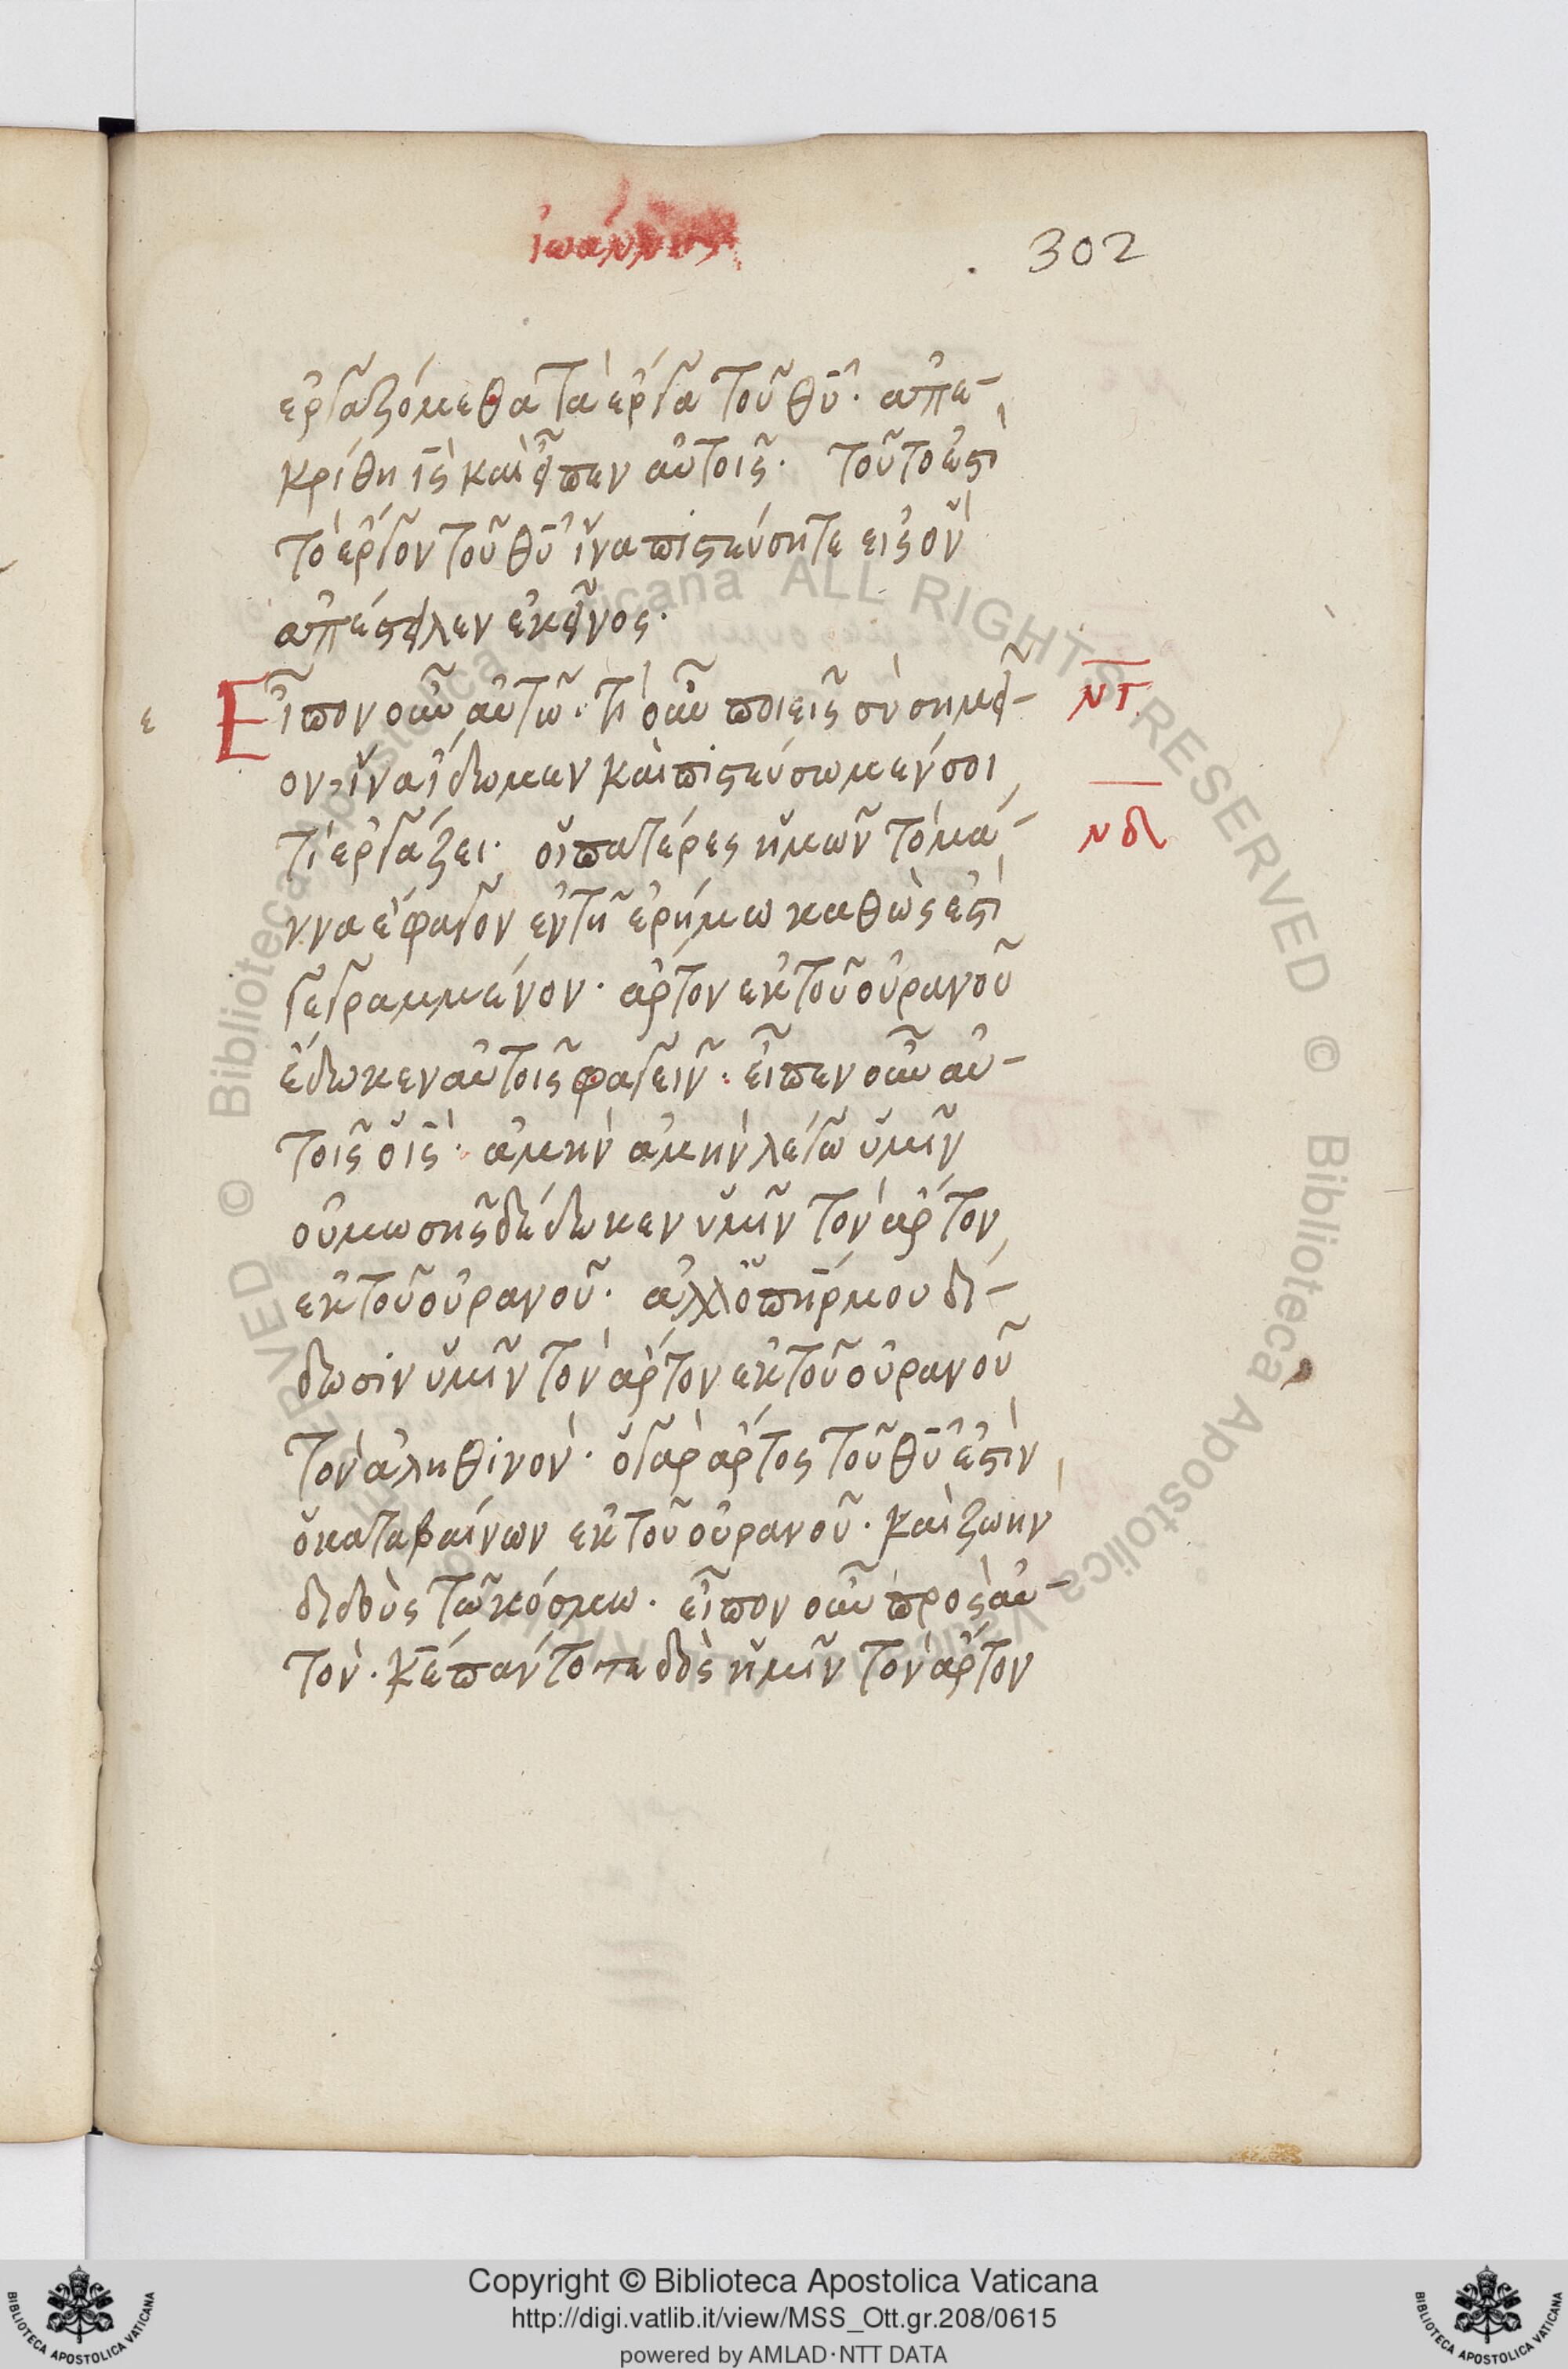 ἰωάννης
302
ἐργαζόμεθα τὰ ἔργα τοῦ θῡ· ἀπε-
κρίθη ῑς̀ καὶ εἶπεν αὐτοῖς· τοῦτο ἐστὶ
τὸ ἔργον τοῦ θῡ ἵνα πιστεύσητε εἰς ὃν
ἀπέστειλεν ἐκεῖνος·
ε Εἶπον οὖν αὐτῶ· τί οὖν ποιεῖς σὺ σημεῖ- νγ
ον, ἵνα ἴδωμεν καὶ πιστεύσωμέν σοι
τί ἐργάζει· οἱ πατέρες ἡμῶν τὸ μά- νδ
ννα ἔφαγον ἐν τῆ ἐρήμω καθώς ἐστὶ
γεγραμμένον· ἄρτον ἐκ τοῦ οὐρανοῦ
ἔδωκεν αὐτοῖς φαγεῖν· εἶπεν οὖν αὐ-
τοῖς ὁ ῑς̀· ἀμὴν ἀμὴν λέγω ὑμῖν
οὐ μωσῆς δέδωκεν ὑμῖν τὸν ἄρτον
ἐκ τοῦ οὐρανοῦ· ἀλλ' ὁ πη̄ρ μου δί-
δωσιν ὑμῖν τὸν ἄρτον ἐκ τοῦ οὐρανοῦ
τὸν ἀληθινόν· ὁ γὰρ ἄρτος τοῦ θῡ ἐστὶν
ὁ καταβαίνων ἐκ τοῦ οὐρανοῦ· καὶ ζωὴν
διδοὺς τῶ κόσμω· εἶπον οὖν πρὸς αὐ-
τὸν· κε̄ πάντοτε δὸς ἡμῖν τὸν ἄρτον
Copyright © Biblioteca Apostolica Vaticana
http://digi.vatlib.it/view/MSS_Ott.gr.208/0615
powered by AMLAD·NTT DATA